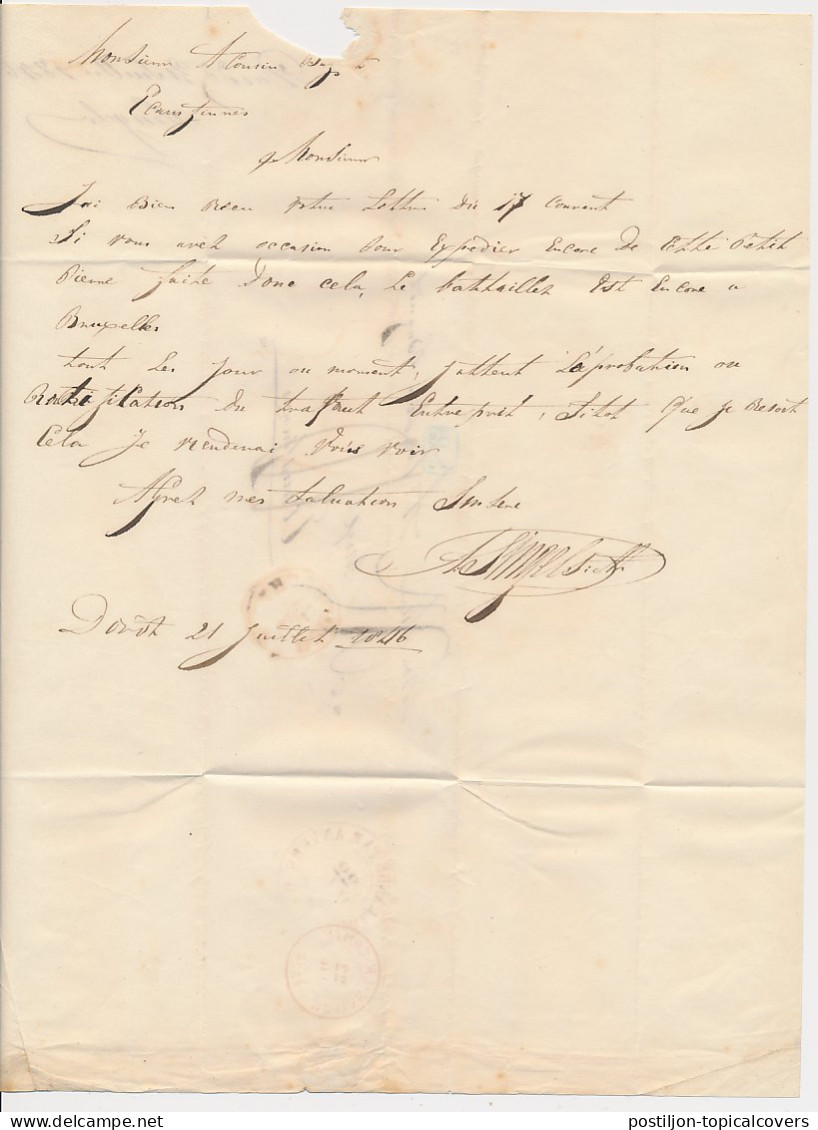 Monsieur A Cousin
Ecaussinnes
Monsieur
J'ai Bien Recu votre Lettre du 17 Courant
Si vous avez occasion pour Expedier Encore de Cette Petit
Pierre faite Donc cela, Le battailler Est Encore a
Bruxelles
tout Les Jour ou moment, J'attent L'aprobation ou
Ratification Du travaut Entreprit, Sitot Que Je Resoit
Cela Je viendrai vous voir
Agrez mes Saluation Sincere
Dordt 21 Juillet 1846
postiljon-topicalcovers